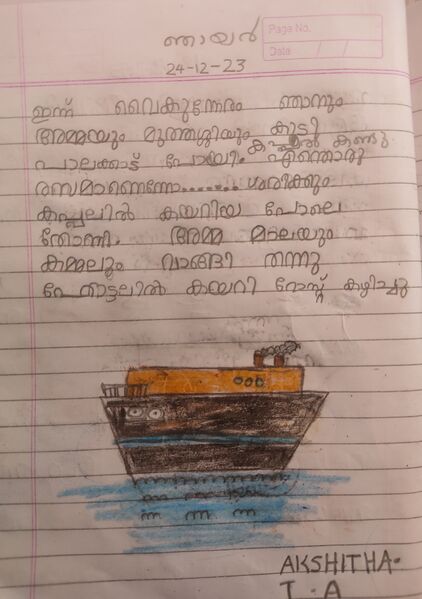 Page No.
Date / /
ഞായർ
24-12-23
ഇന്ന് വൈകുന്നേരം ഞാനും
അമ്മയും മുത്തശ്ശിയും കൂടി
കപ്പൽ കണ്ടു
പാലക്കാട് പോയി. എന്തൊരു
രസമാണെന്നോ....... ശരിക്കും
കപ്പലിൽ കയറിയ പോലെ
തോന്നി. അമ്മ മാലയും
കമ്മലും വാങ്ങി തന്നു
ഹോട്ടലിൽ കയറി റോസ്റ്റ് കഴിച്ചു
AKSHITHA.
I.A